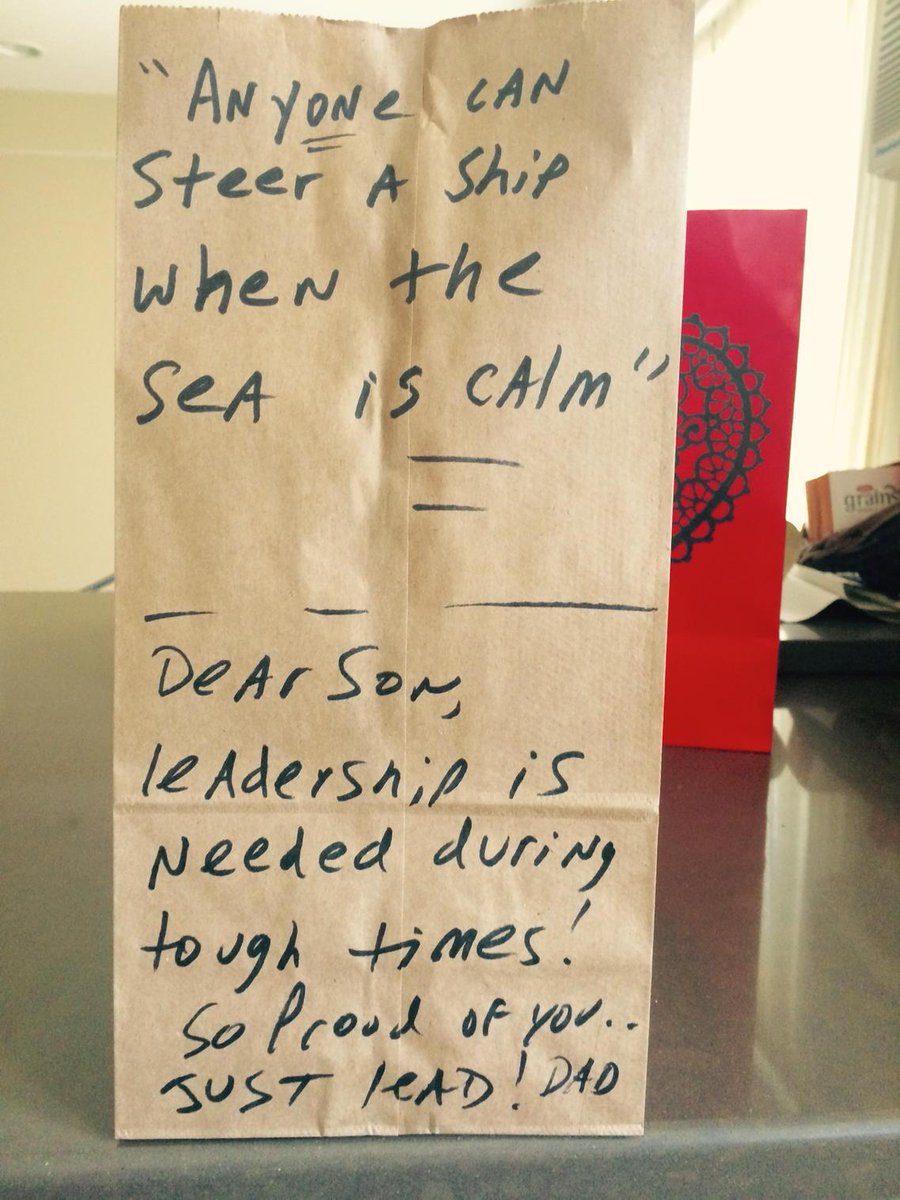 "Anyone can
steer a ship
when the
sea is calm"
Dear Son,
leadership is
needed during
tough times!
So Proud of you..
JUST leAD! DAD
grains